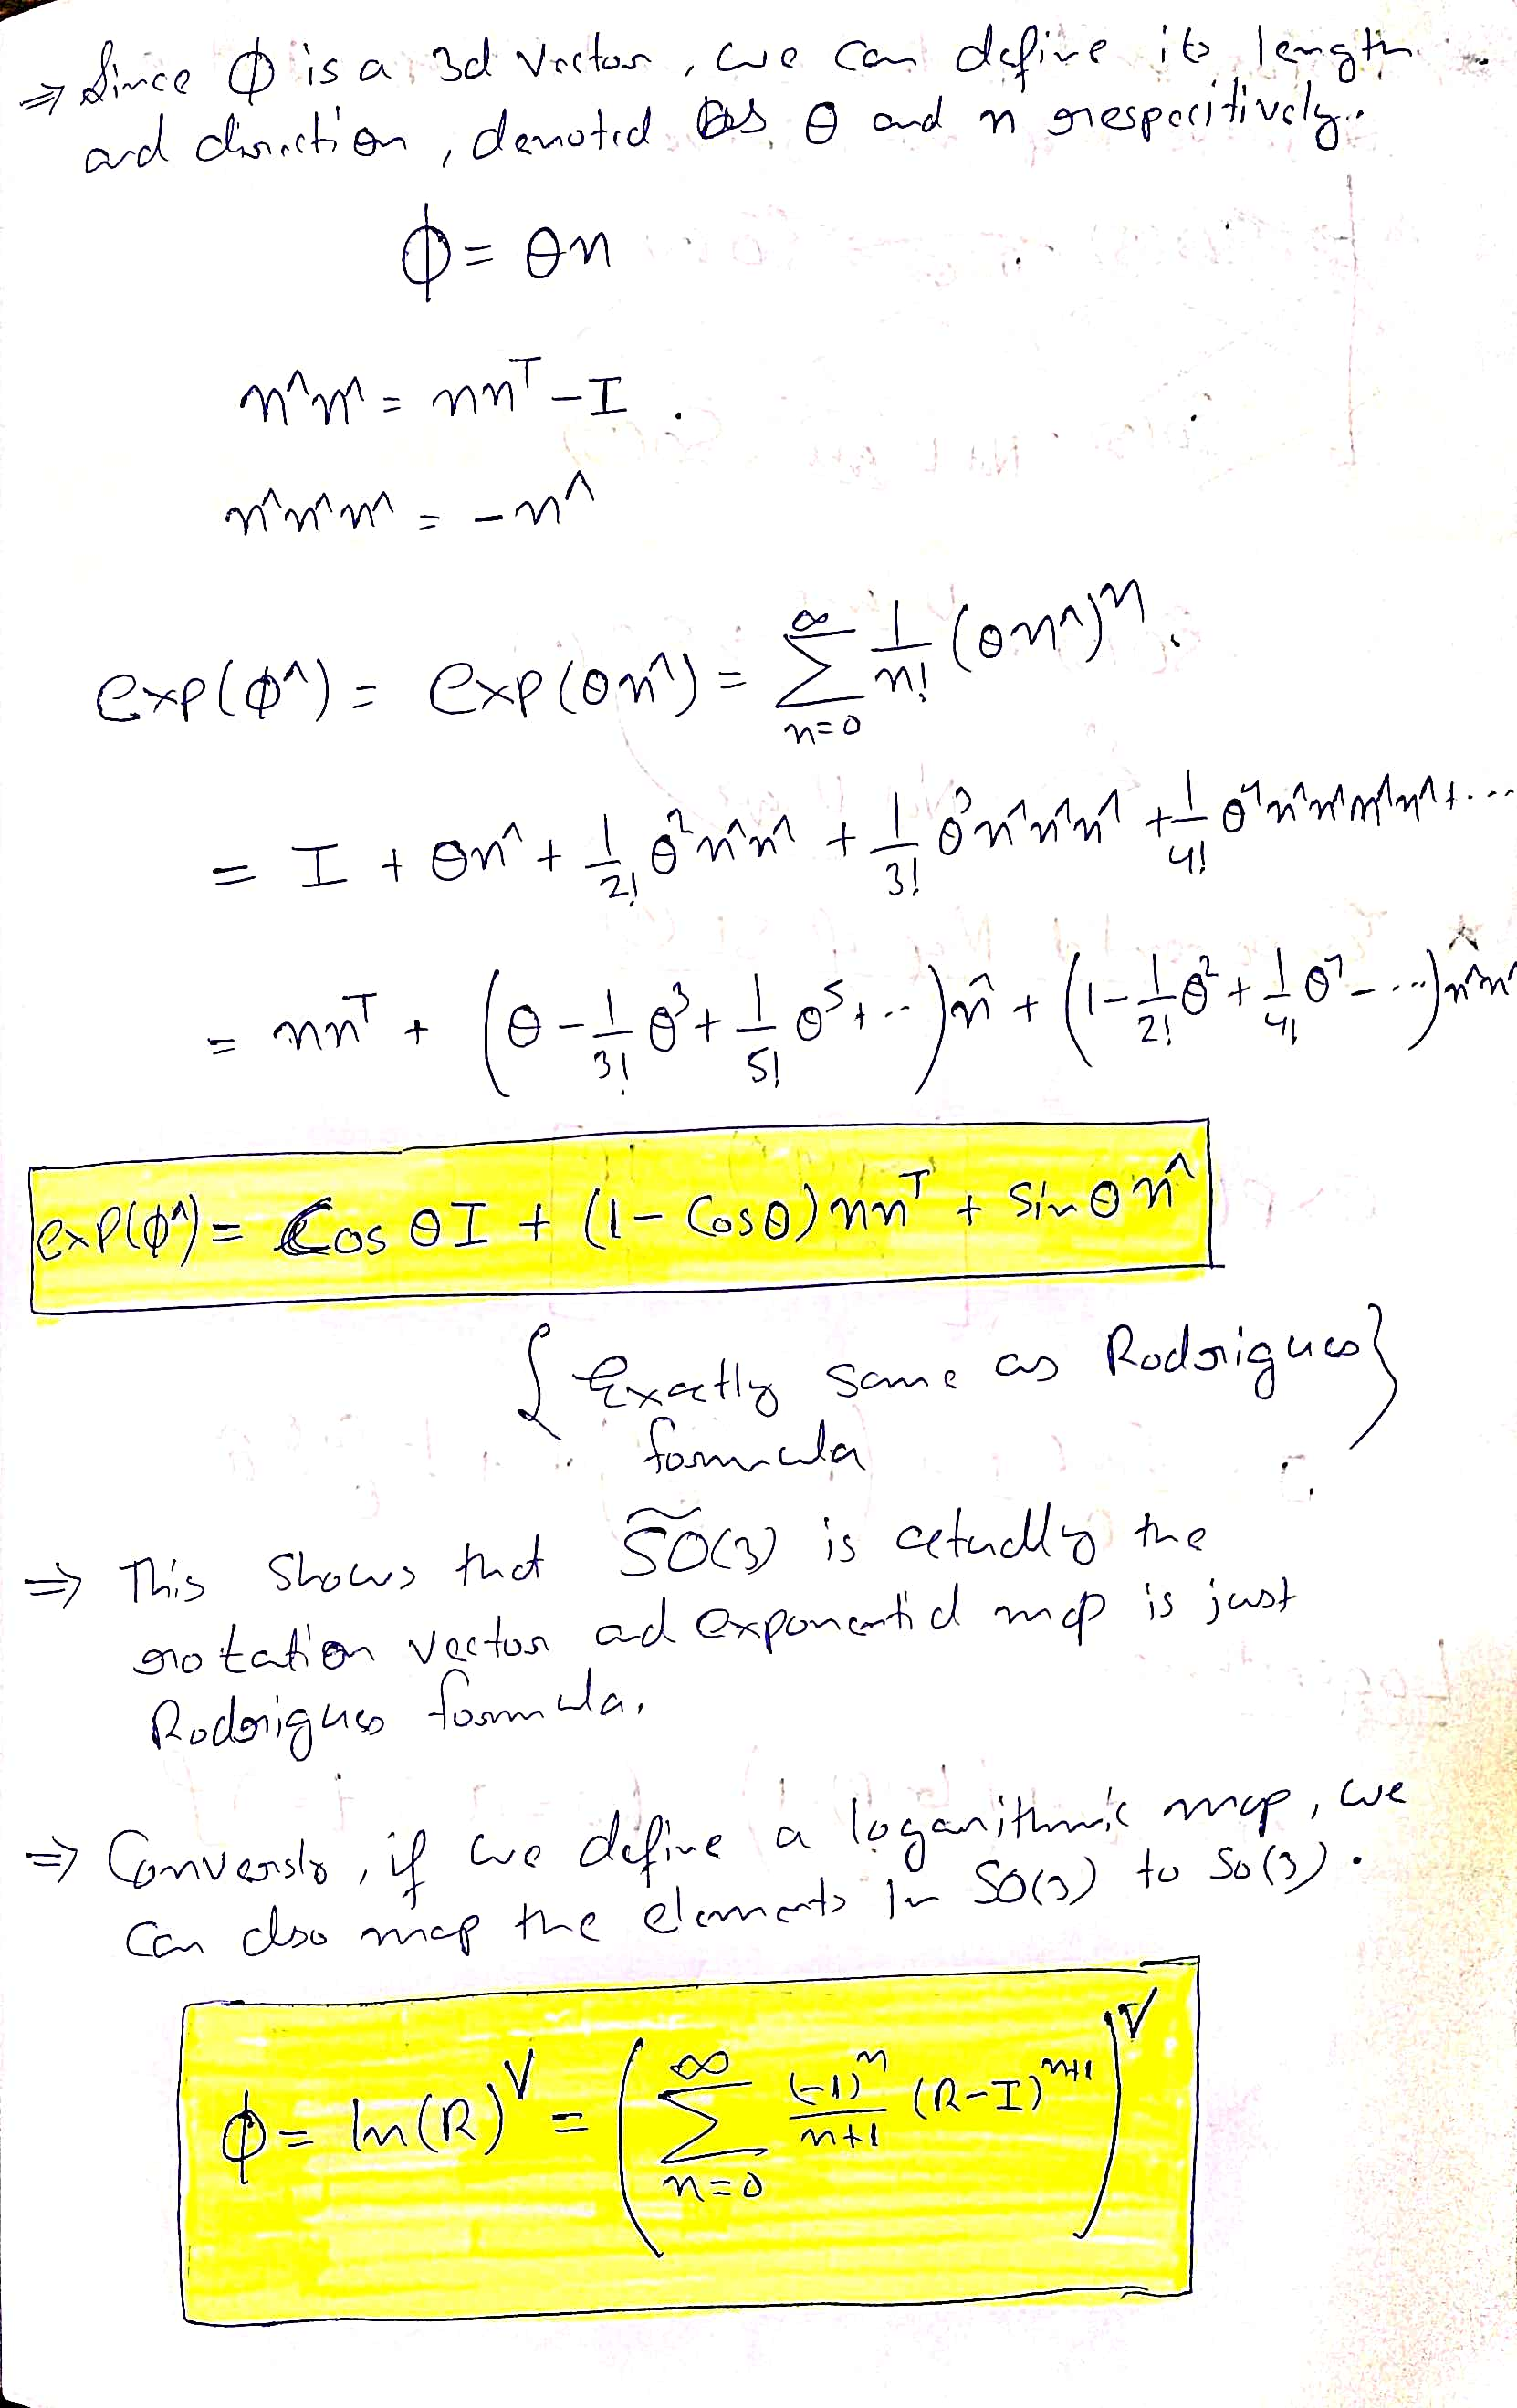 ⇒ Since ϕ is a 3d vector, we can define its length
and direction, denoted as θ and n respecitively.
ϕ = θn
n^n^ = nnᵀ - I .
n^n^n^ = -n^
exp(ϕ^) = exp(θn^) = ∑_{n=0}^{∞} 1/n! (θn^)ⁿ.
= I + θn^ + 1/2! θ²n^n^ + 1/3! θ³n^n^n^ + 1/4! θ⁴n^n^n^n^ + ...
= nnᵀ + (θ - 1/3! θ³ + 1/5! θ⁵ + ...)n^ + (1 - 1/2! θ² + 1/4! θ⁴ - ...)n^n^
exp(ϕ^) = Cos θI + (1 - Cosθ)nnᵀ + Sinθn^
{Exactly same as Rodrigues}
formula
⇒ This shows that so(3) is actually the
rotation vector and exponential map is just
Rodrigues formula.
⇒ Conversly, if we define a logarithmic map, we
can also map the elements in SO(3) to so(3).
ϕ = ln(R)^∨ = (∑_{n=0}^{∞} (-1)ⁿ/n+1 (R-I)ⁿ⁺¹)^∨